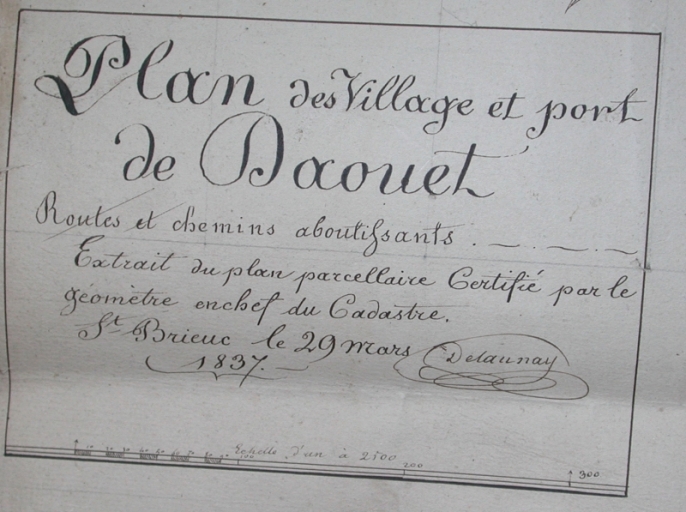 Plan des Village et port
de Daouet
Routes et chemins aboutissants.
Extrait du plan parcellaire Certifié par le
géomètre en chef du Cadastre.
St Brieuc le 29 mars
1837.
Delaunay
Echelle d'un à 2500
100 200 300